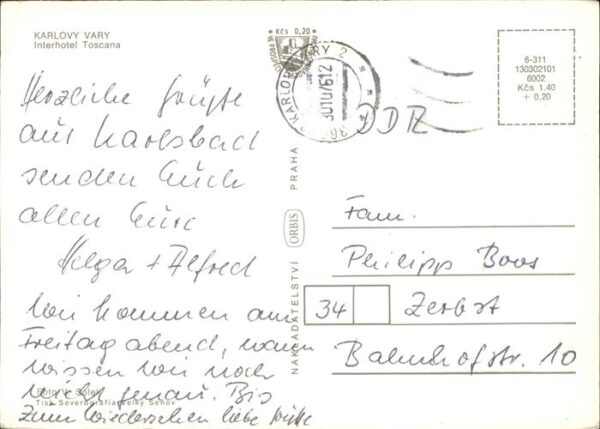 KARLOVY VARY
Interhotel Toscana
Herzliche Grüße
aus Karlsbad
senden Euch
allen Eure
Helga + Alfred
Wir kommen am
Freitag abend, wann
wissen wir noch
nicht genau. Bis
Foto V. Solel
Tisk Severografia Velký Šenov
zum Wiedersehen liebe Grüße
NAKLADATELSTVÍ ORBIS PRAHA
Kčs 0,20
KARLOVY VARY 2
DDR
6-311
130302101
6002
Kčs 1.40
+ 0.20
Fam.
Philipp Boos
34 Zerbst
Bahnhofstr. 10